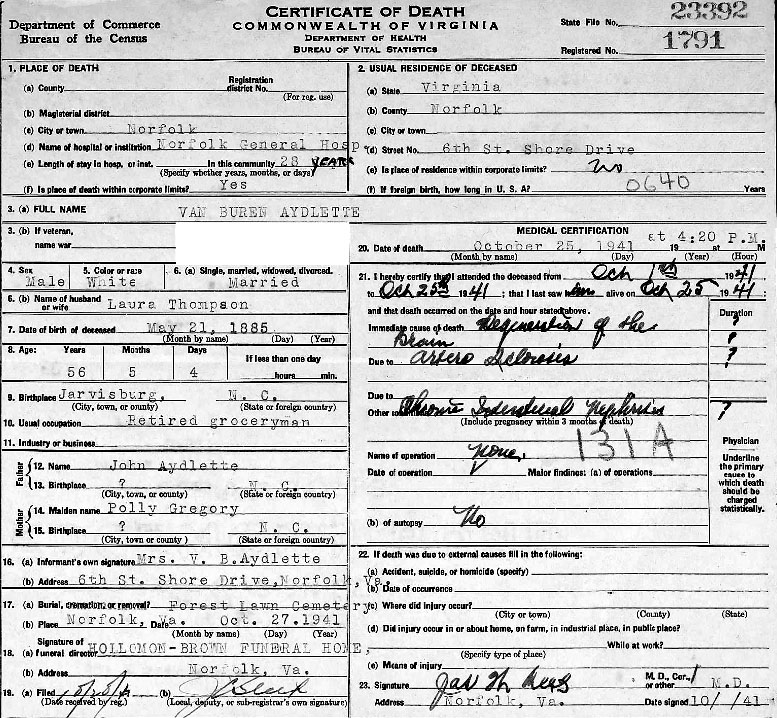 Department of Commerce
Bureau of the Census
CERTIFICATE OF DEATH
COMMONWEALTH OF VIRGINIA
DEPARTMENT OF HEALTH
BUREAU OF VITAL STATISTICS
State File No. 23392
Registered No. 1791
1. PLACE OF DEATH
(a) County
Registration district No.
(For reg. use)
(b) Magisterial district
(c) City or town Norfolk
(d) Name of hospital or institution Norfolk General Hosp.
(e) Length of stay in hosp. or inst. In this community 28 YEARS
(Specify whether years, months, or days)
(f) Is place of death within corporate limits? Yes
2. USUAL RESIDENCE OF DECEASED
(a) State Virginia
(b) County Norfolk
(c) City or town
(d) Street No. 6th St. Shore Drive
(e) Is place of residence within corporate limits? No
0640
(f) If foreign birth, how long in U. S. A? Years
3. (a) FULL NAME VAN BUREN AYDLETTE
3. (b) If veteran, name war
4. Sex Male
5. Color or race White
6. (a) Single, married, widowed, divorced. Married
6. (b) Name of husband or wife Laura Thompson
7. Date of birth of deceased May 21, 1885
(Month by name) (Day) (Year)
8. Age: Years Months Days If less than one day
56 5 4 hours min.
9. Birthplace Jarvisburg, N. C.
(City, town, or county) (State or foreign country)
10. Usual occupation Retired groceryman
11. Industry or business
Father
12. Name John Aydlette
13. Birthplace ? N. C.
(City, town, or county) (State or foreign country)
Mother
14. Maiden Name Polly Gregory
15. Birthplace ? N. C.
(City, town, or county ) (State or foreign country)
16. (a) Informant's own signature Mrs. V. B.Aydlette
(b) Address 6th St. Shore Drive,Norfolk,Va.
17. (a) Burial, cremation, or removal? Forest Lawn Cemetery
(b) Place Norfolk, Va. Date Oct. 27.1941
(Month by name) (Day) (Year)
18. Signature of (a) funeral director HOLLOMON-BROWN FUNERAL HOME,
(b) Address Norfolk, Va.
19. (a) Filed (b)
(Date received by reg.) (Local, deputy, or sub-registrar's own signature)
MEDICAL CERTIFICATION
20. Date of death October 25, 1941 19 at 4:20 P.M. M
(Month by name) (Day) (Year) (Hour)
21. I hereby certify that I attended the deceased from Oct 1941
to Oct 25th 1941; that I last saw him alive on Oct 25 1941:
and that death occurred on the date and hour stated above. Duration
Immediate cause of death Degeneration of the ?
Brain ?
Due to Artero Sclerosis ?
Due to
Other Chronic Interstitial Nephritis ?
(Include pregnancy within 3 months of death)
131A
Name of operation none,
Date of operation Major findings: (a) of operations
(b) of autopsy No
Physician
Underline the primary cause to which death should be charged statistically.
22. If death was due to external causes fill in the following:
(a) Accident, suicide, or homicide (specify)
(b) Date of occurrence
(c) Where did injury occur?
(City or town) (County) (State)
(d) Did injury occur in or about home, on farm, in industrial place, in public place?
While at work?
(Specify type of place)
(e) Means of injury
23. Signature M. D., Cor. or other M.D.
Address Norfolk, Va. Date signed 10/ /41